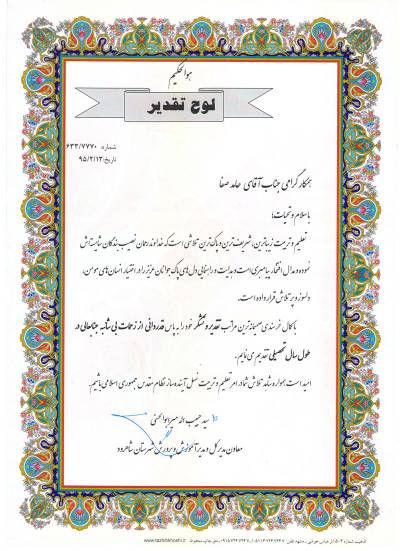 هوالحکیم
لوح تقدیر
شماره: ۶۳۳/۷۷۷۰
تاریخ: ۹۵/۲/۱۳
همکار گرامی جناب آقای حامد صفا
با سلام و تحیات؛
تعلیم و تربیت زیباترین، شریف‌ترین و پاک‌ترین تلاشی است که خداوند رحمان نصیب بندگان شایسته‌اش
نموده و مدال افتخار پیامبری است و هدایت و راهنمایی دل‌های پاک جوانان عزیز را در اختیار انسان‌های مومن،
دلسوز و پر تلاش قرار داده است.
با کمال خرسندی صمیمانه‌ترین مراتب تقدیر و تشکر خود را به پاس قدردانی از زحمات بی شائبه جنابعالی در
طول سال تحصیلی تقدیم می نمایم.
امید است همواره شاهد تلاش شما در امر تعلیم و تربیت نسل آینده ساز نظام مقدس جمهوری اسلامی باشیم.
سید حبیب اله میرابوالحسنی
معاون مدیر کل و مدیر آموزش و پرورش شهرستان شاهرود
www.tazhibkhoshi.ir